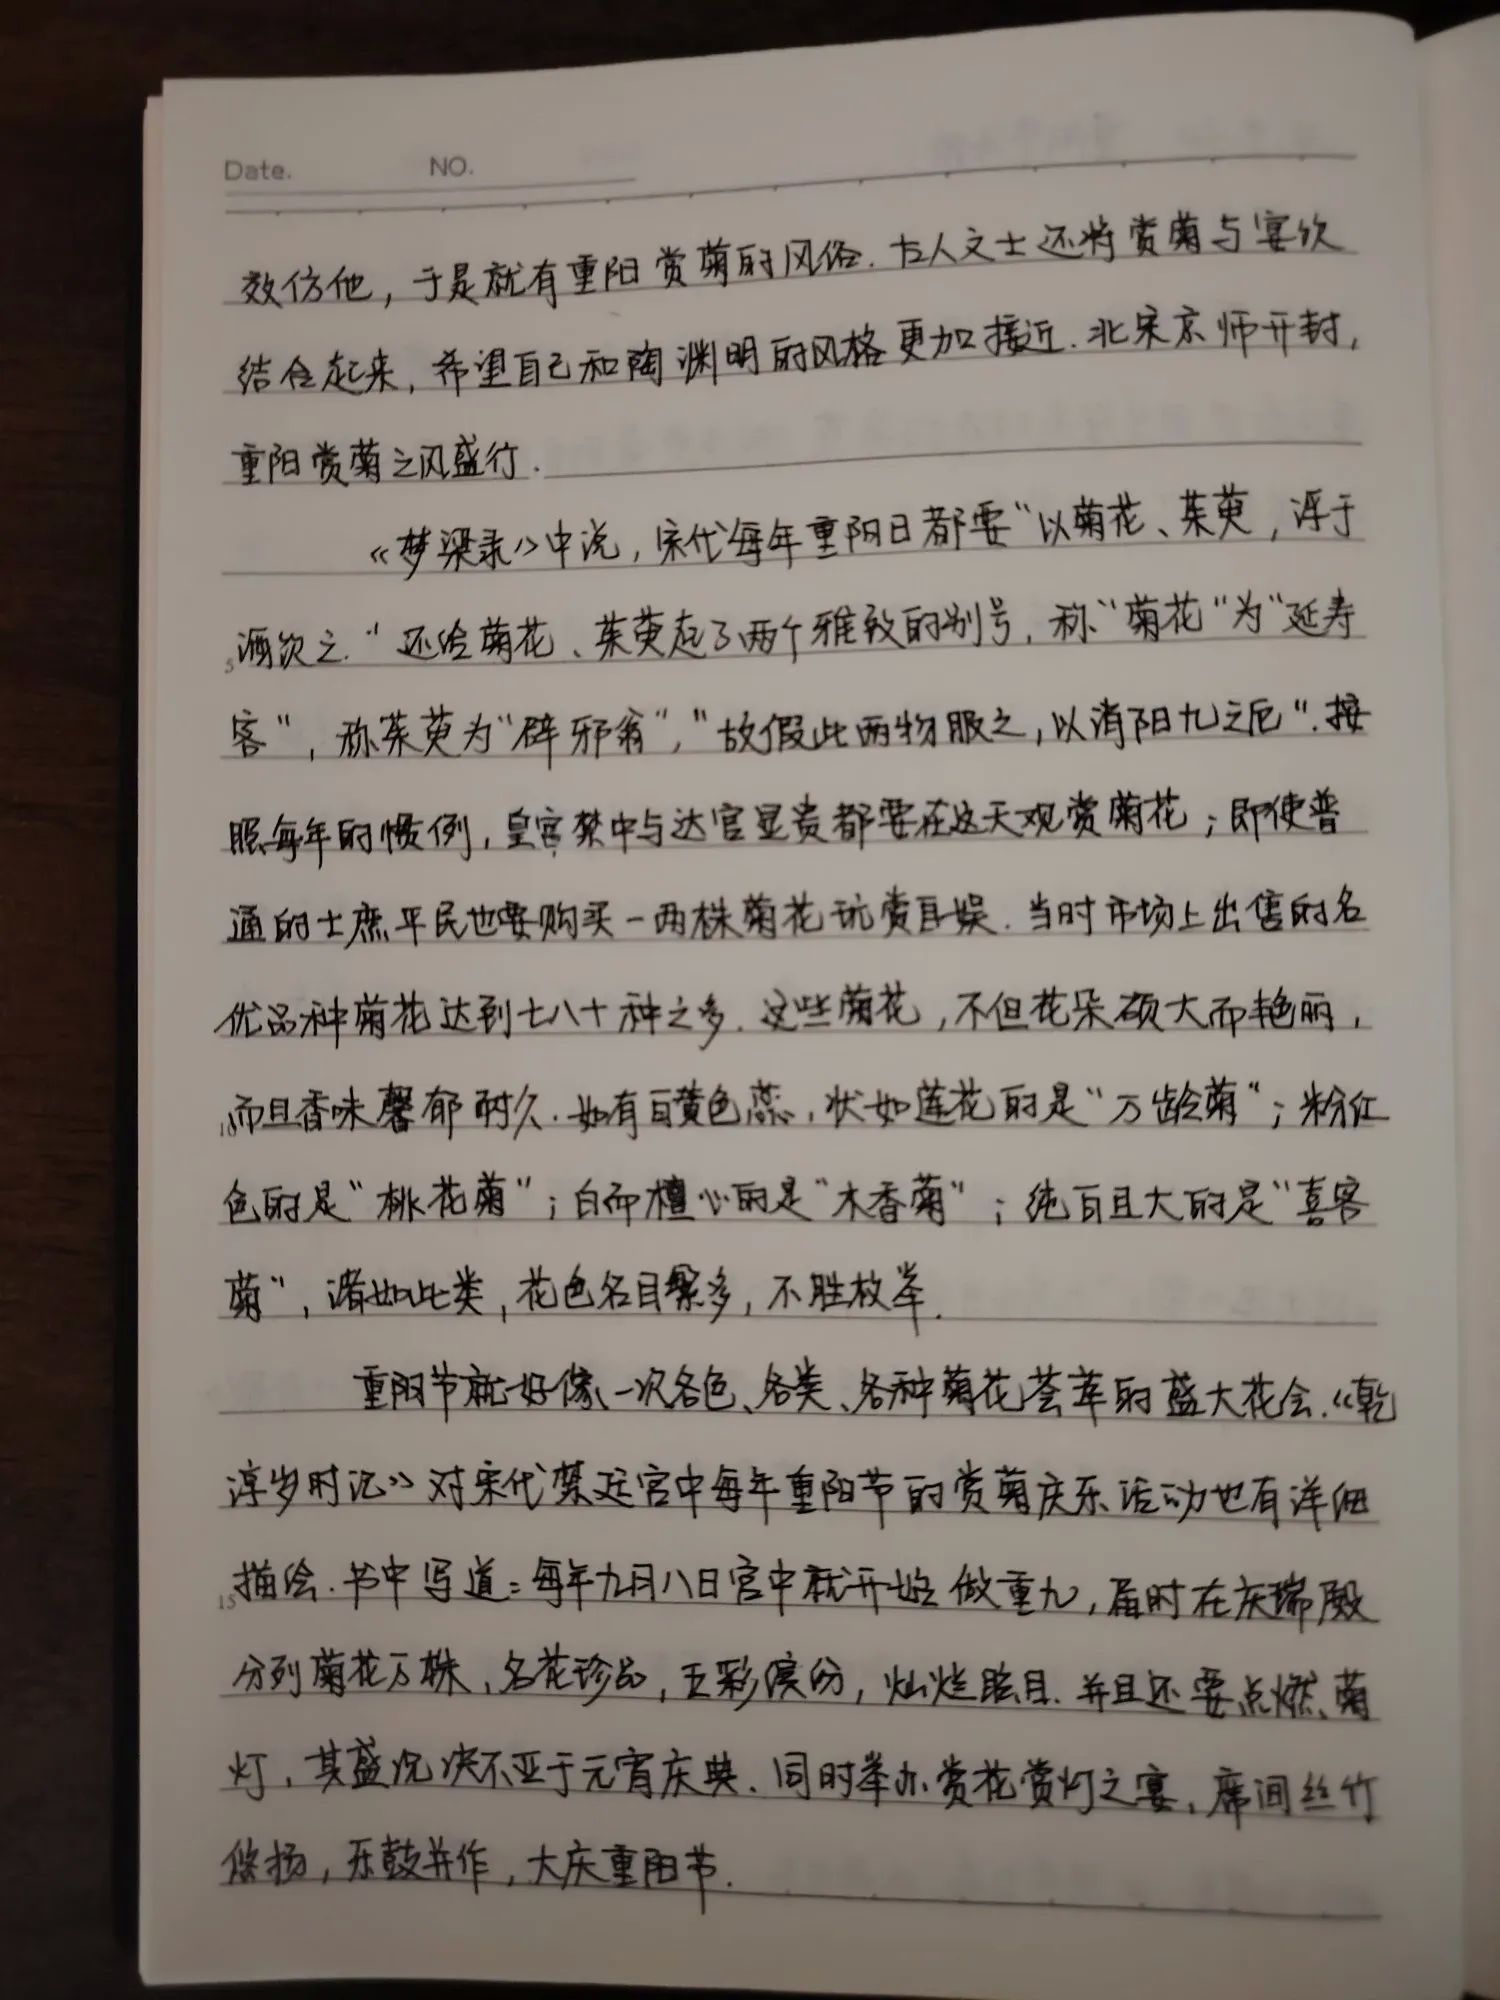 Date. NO.
效仿他，于是就有重阳赏菊的风俗. 古人文士还将赏菊与宴饮
结合起来，希望自己和陶渊明的风格更加接近. 北宋京师开封，
重阳赏菊之风盛行.
《梦梁录》中说，宋代每年重阳日都要“以菊花、茱萸，浮于
5
酒饮之.“还给菊花、茱萸起了两个雅致的别号，称“菊花“为“延寿
客“，称茱萸为“辟邪翁“，“故假此两物服之，以消阳九之厄“. 按
照每年的惯例，皇宫禁中与达官显贵都要在这天观赏菊花；即使普
通的士庶平民也要购买一两株菊花玩赏自娱. 当时市场上出售的名
优品种菊花达到七八十种之多. 这些菊花，不但花朵硕大而艳丽，
10
而且香味馨郁耐久. 如有白黄色蕊，状如莲花的是“万龄菊“；粉红
色的是“桃花菊“；白而檀心的是“木香菊“；纯白且大的是“喜客
菊“，诸如此类，花色名目繁多，不胜枚举.
重阳节就好像一次各色、各类、各种菊花荟萃的盛大花会.《乾
淳岁时记》对宋代禁廷宫中每年重阳节的赏菊庆乐活动也有详细
15
描绘. 书中写道：每年九月八日宫中就开始做重九，届时在庆瑞殿
分列菊花万株，名花珍品，五彩缤纷，灿烂眩目. 并且还要点燃菊
灯，其盛况决不亚于元宵庆典. 同时举办赏花赏灯之宴，席间丝竹
悠扬，乐鼓并作，大庆重阳节.